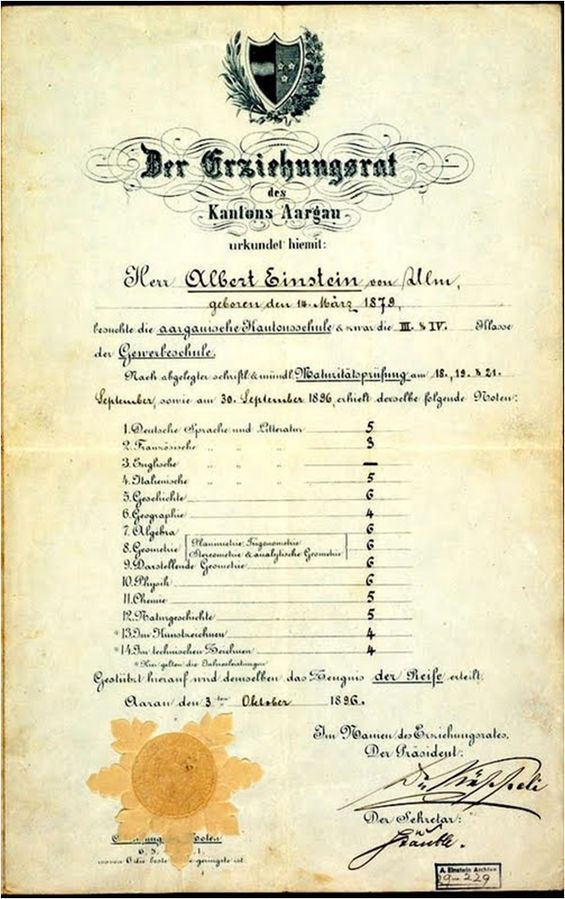 Der Erziehungsrat
des
Kantons Aargau
urkundet hiemit:
Herr Albert Einstein von Ulm,
geboren den 14. März 1879,
besuchte die aargauische Kantonsschule & zwar die III. & IV. Klasse
der Gewerbeschule.
Nach abgelegter schriftl. & mündl. Maturitätsprüfung am 18., 19. & 21.
September, sowie am 30. September 1896, erhielt derselbe folgende Noten:
1. Deutsche Sprache und Litteratur 5
2. Französische " " " 3
3. Englische " " " —
4. Italienische " " " 5
5. Geschichte 6
6. Geographie 4
7. Algebra 6
8. Geometrie [Planimetrie, Trigonometrie 6
Stereometrie & analytische Geometrie]
9. Darstellende Geometrie 6
10. Physik 6
11. Chemie 5
12. Naturgeschichte 5
*13. Im Kunstzeichnen 4
*14. Im technischen Zeichnen 4
*Hier gelten die Jahresleistungen
Gestützt hierauf wird demselben das Zeugnis der Reife erteilt.
Aarau den 3ten Oktober 1896.
Im Namen des Erziehungsrates,
Der Präsident:
Der Sekretär:
Noten
6, 5, 1.
wovon 6 die beste geringste ist.
A. Einstein Archive
29-229